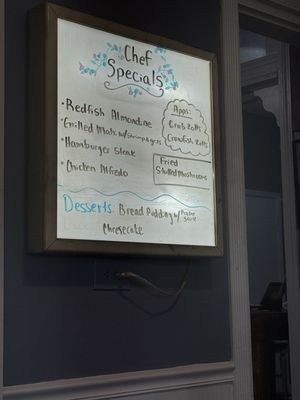 Chef
Specials
• Redfish Almondine
• Grilled Mahi w/ Shrimp & grits
• Hamburger Steak
• Chicken Alfredo
Apps:
Crab Rolls
Crawfish Rolls
Fried
Stuffed Mushrooms
Desserts: Bread Pudding w/ Praline sauce
Cheesecake